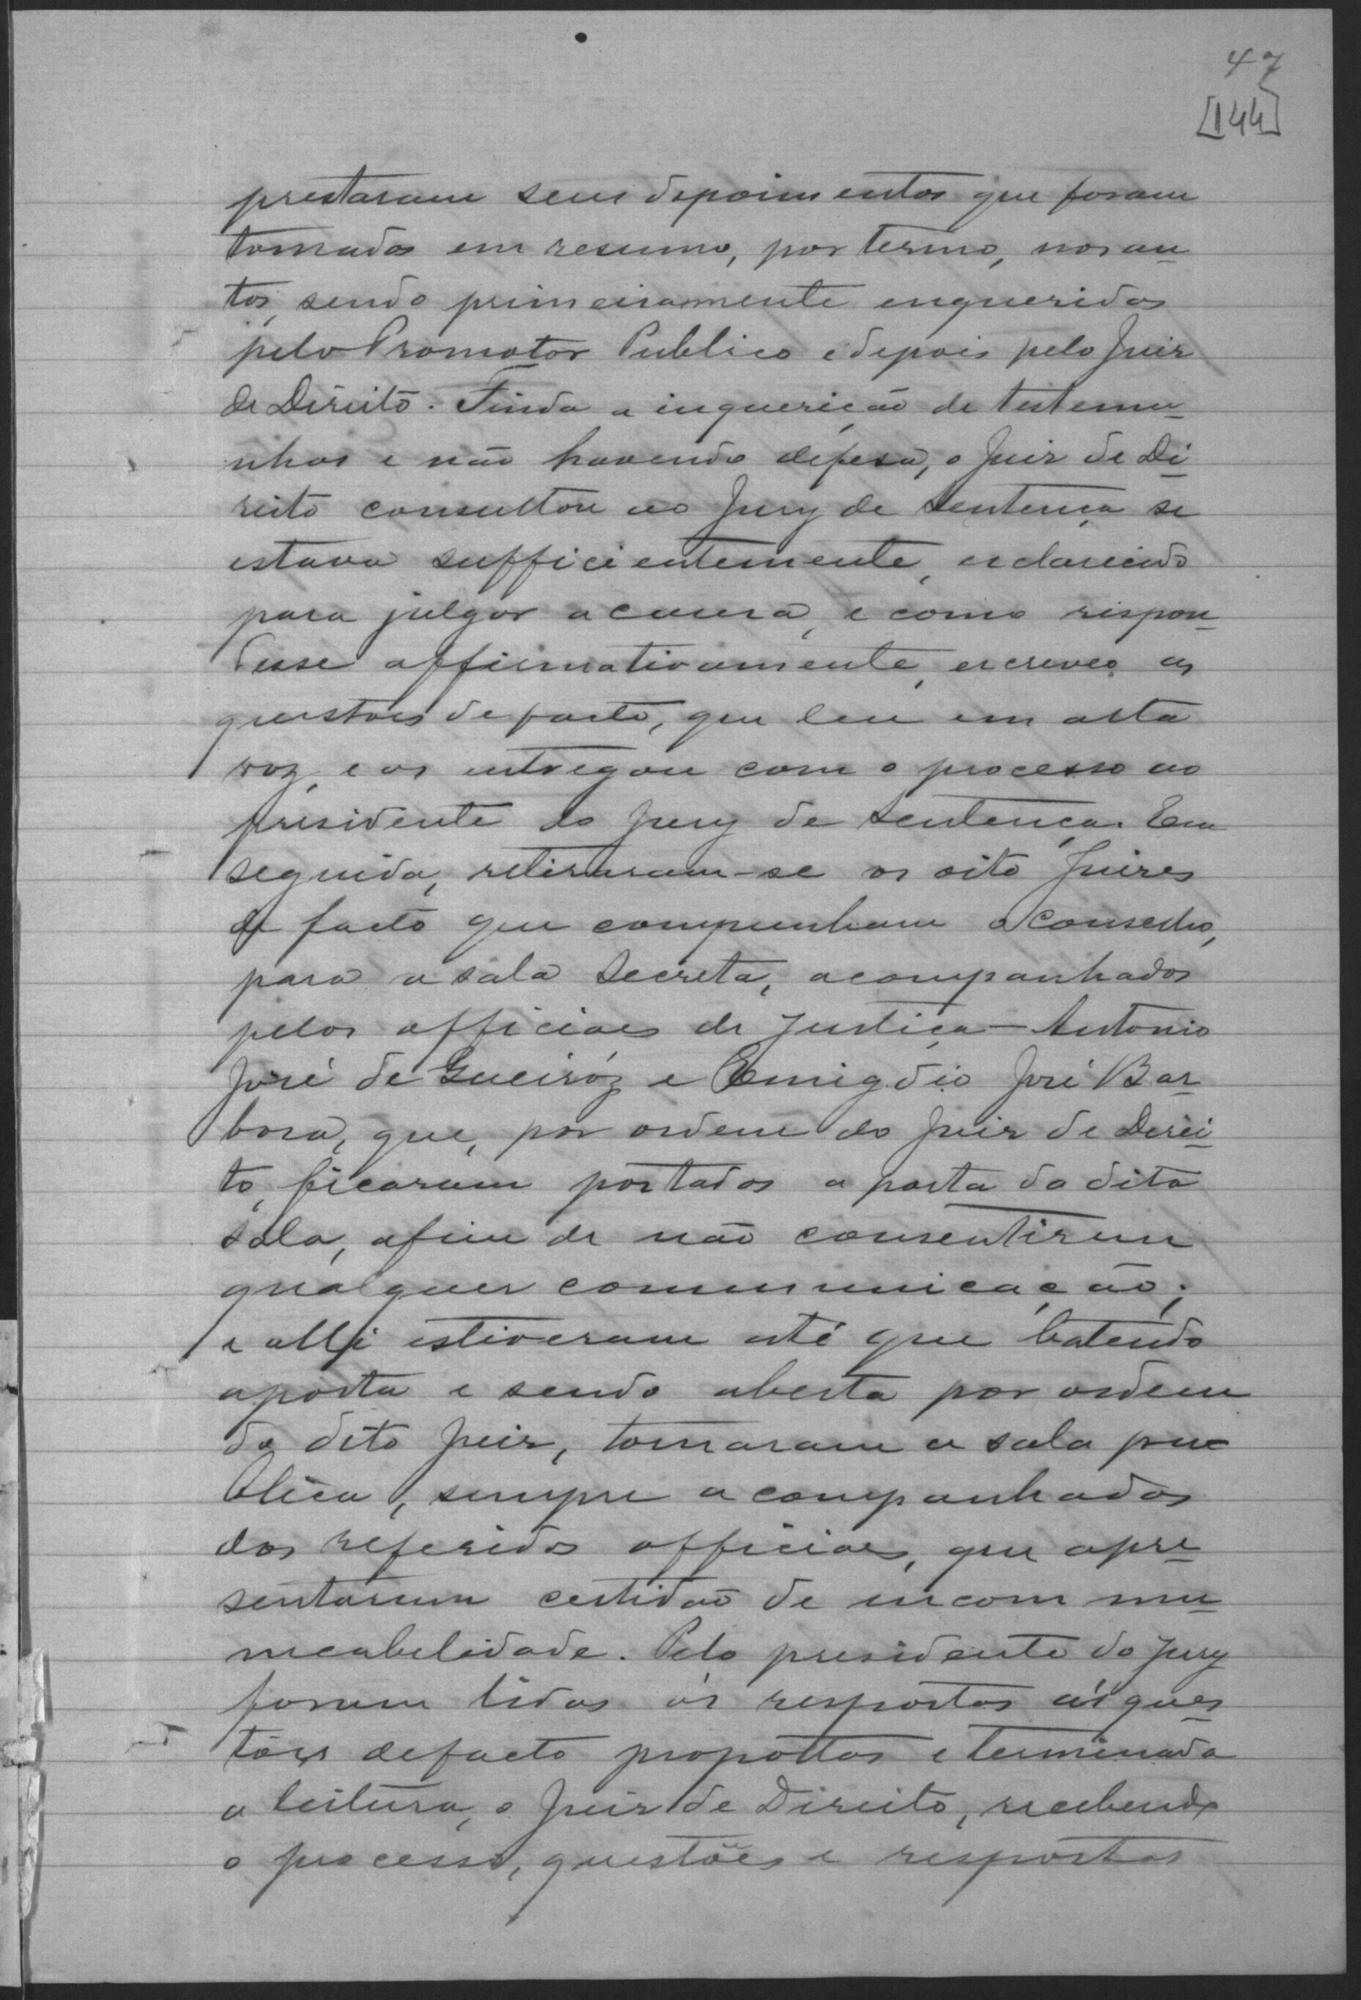 47
[144]
prestaram seus depoimentos que foram
tomados em resumo, por termo, nos au-
tos, sendo primeiramente enqueridas
pelo Promotor Publico e depois pelo Juiz
de Direito. Finda a inquerição de testemu-
nhas e não havendo defesa, o Juiz de Di-
reito consultou ao Jury de Sentença se
estava sufficientemente, esclarecido
para julgar a causa, e como respon-
desse affirmativamente, escreveo as
questões de facto, que leu em alta
voz, e as entregou com o processo ao
presidente do Jury de Sentença. Em
seguida, retiraram-se os oito Juizes
de facto que compunham o Conselho,
para a sala Secreta, acompanhados
pelos officiaes de Justiça — Antonio
José de Gueiróz e Emigdio José Bar-
bosa, que, por ordem do Juiz de Direi-
to, ficaram postados a porta da dita
sala, afim de não consentirem
qualquer communicação;
e alli estiveram até que batendo
a porta e sendo aberta por ordem
do dito Juiz, tornaram a sala pu-
blica, sempre acompanhados
dos referidos officiaes, que apre-
sentaram certidão de incommu-
nicabelidade. Pelo presidente do Jury
foram lidas as respostas ás ques-
tões de facto propostas e terminada
a leitura, o Juiz de Direito, recebendo
o processo, questões e respostas